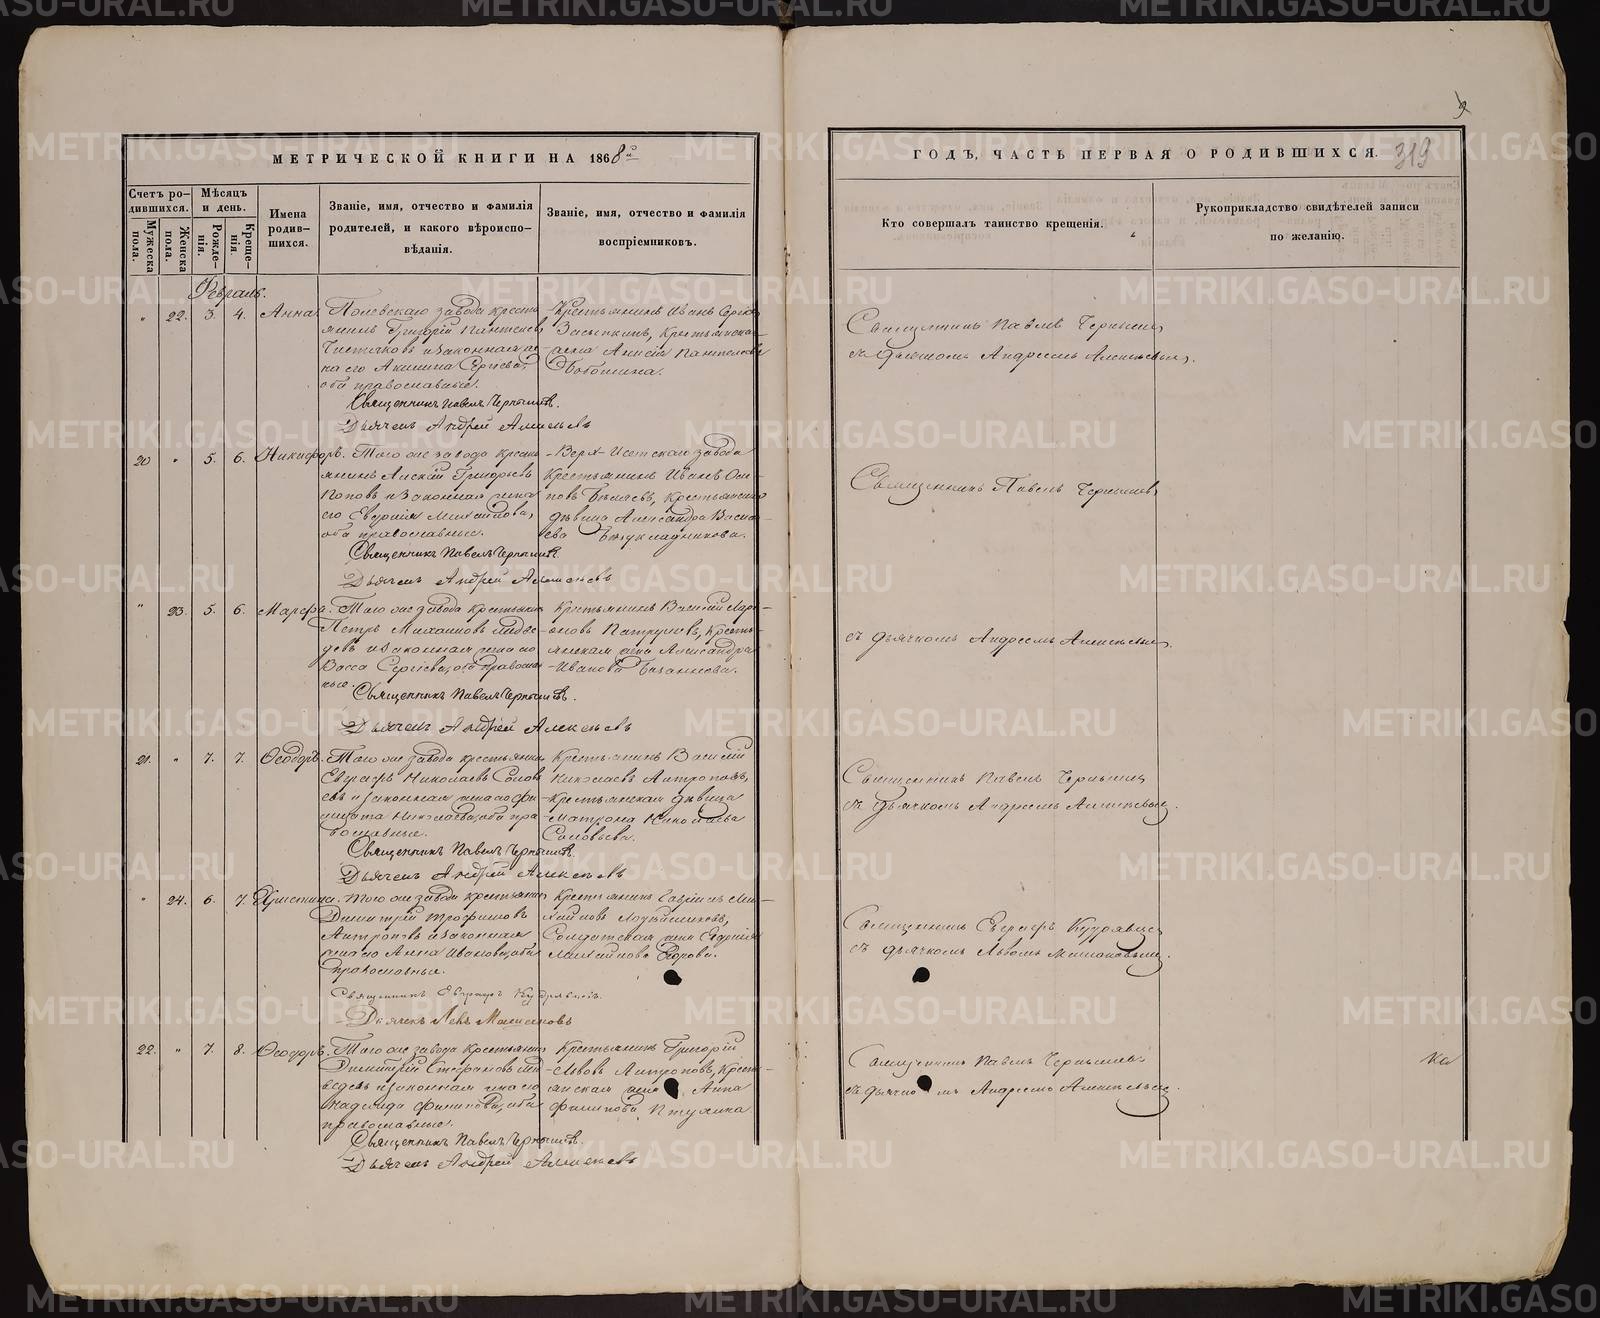 МЕТРИЧЕСКОЙ КНИГИ НА 1868й
Счетъ родившихся.
Мужеска пола.
Женска пола.
Мѣсяцъ и день.
Рожденія.
Крещенія.
Имена родившихся.
Званіе, имя, отчество и фамилія родителей, и какого вѣроисповѣданія.
Званіе, имя, отчество и фамилія воспріемниковъ.
Февраль.
" 22. 3. 4. Анна.
Полевскаго завода кресть
янинъ Григорій
Чистяковъ и законная же
на его Акилина Сергіева,
оба православные.
Крестьянинъ Иванъ
Засыпкинъ, Крестьянска
Анисія Пантелеева
Священникъ Павелъ Чернышевъ.
Дьячекъ Андрей Алексѣевъ
20 " 5. 6. Никифоръ.
Того же завода кресть
янинъ Григорьевъ
Поповъ и законная жена
его Евгенія Михайлова,
оба православные.
Верх-Исетскаго завода
Крестьянинъ Иванъ Оси
повъ Бѣляевъ, Крестьянская
дѣвица Александра Васил
ева
Священникъ Павелъ Чернышевъ
Дьячекъ Андрей Алексѣевъ
" 23. 5. 6. Марѳа.
Того же завода крестьянинъ
Петръ Михайловъ
и законная жена его
Васса Сергіева, оба православ
ные.
Крестьянинъ Василій Лари
оновъ Патрушевъ, Кресть
янская жена Александра
Иванова
Священникъ Павелъ Чернышевъ.
Дьячекъ Андрей Алексѣевъ
21. " 7. 7. Ѳеодоръ.
Того же завода крестьянинъ
Евграфъ Николаевъ Солов
евъ и законная жена его
Николаева, оба пра
вославные.
Крестьянинъ Василій
Николаевъ Антроповъ,
Крестьянская дѣвица
Матрона Николаева
Соловьева.
Священникъ Павелъ Чернышевъ.
Дьячекъ Андрей Алексѣевъ
" 24. 6. 7. Христина.
Того же завода крестьянинъ
Димитрій Трофимовъ
Антроповъ и законная
жена его Анна Ивановa, оба
православные.
Крестьянинъ Гавріилъ Ми
хайловъ
Солдатская жена
Михайлова
Священникъ Евграфъ Кудрявцевъ.
Дьячекъ Левъ
22. " 7. 8. Ѳеодоръ.
Того же завода Крестьянинъ
Димитрій Стефановъ
и законная жена его
Надежда Филипова, оба
православные.
Крестьянинъ Григорій
Львовъ Антроповъ, Крест
янская жена Анна
Филипова Птухина
Священникъ Павелъ Чернышевъ.
Дьячекъ Андрей Алексѣевъ
ГОДЪ, ЧАСТЬ ПЕРВАЯ О РОДИВШИХСЯ.
319
Кто совершалъ таинство крещенія.
Рукоприкладство свидѣтелей записи
по желанію.
Священникъ Павелъ Чернышевъ
съ дьячкомъ Андреемъ Алексѣевымъ.
Священникъ Павелъ Чернышевъ
съ дьячкомъ Андреемъ Алексѣевымъ.
Священникъ Павелъ Чернышевъ
съ дьячкомъ Андреемъ Алексѣевымъ.
Священникъ Евграфъ Кудрявцевъ
съ дьячкомъ Львомъ
Священникъ Павелъ Чернышевъ
съ дьячкомъ Андреемъ Алексѣевымъ.
Ка
METRIKI.GASO-URAL.RU